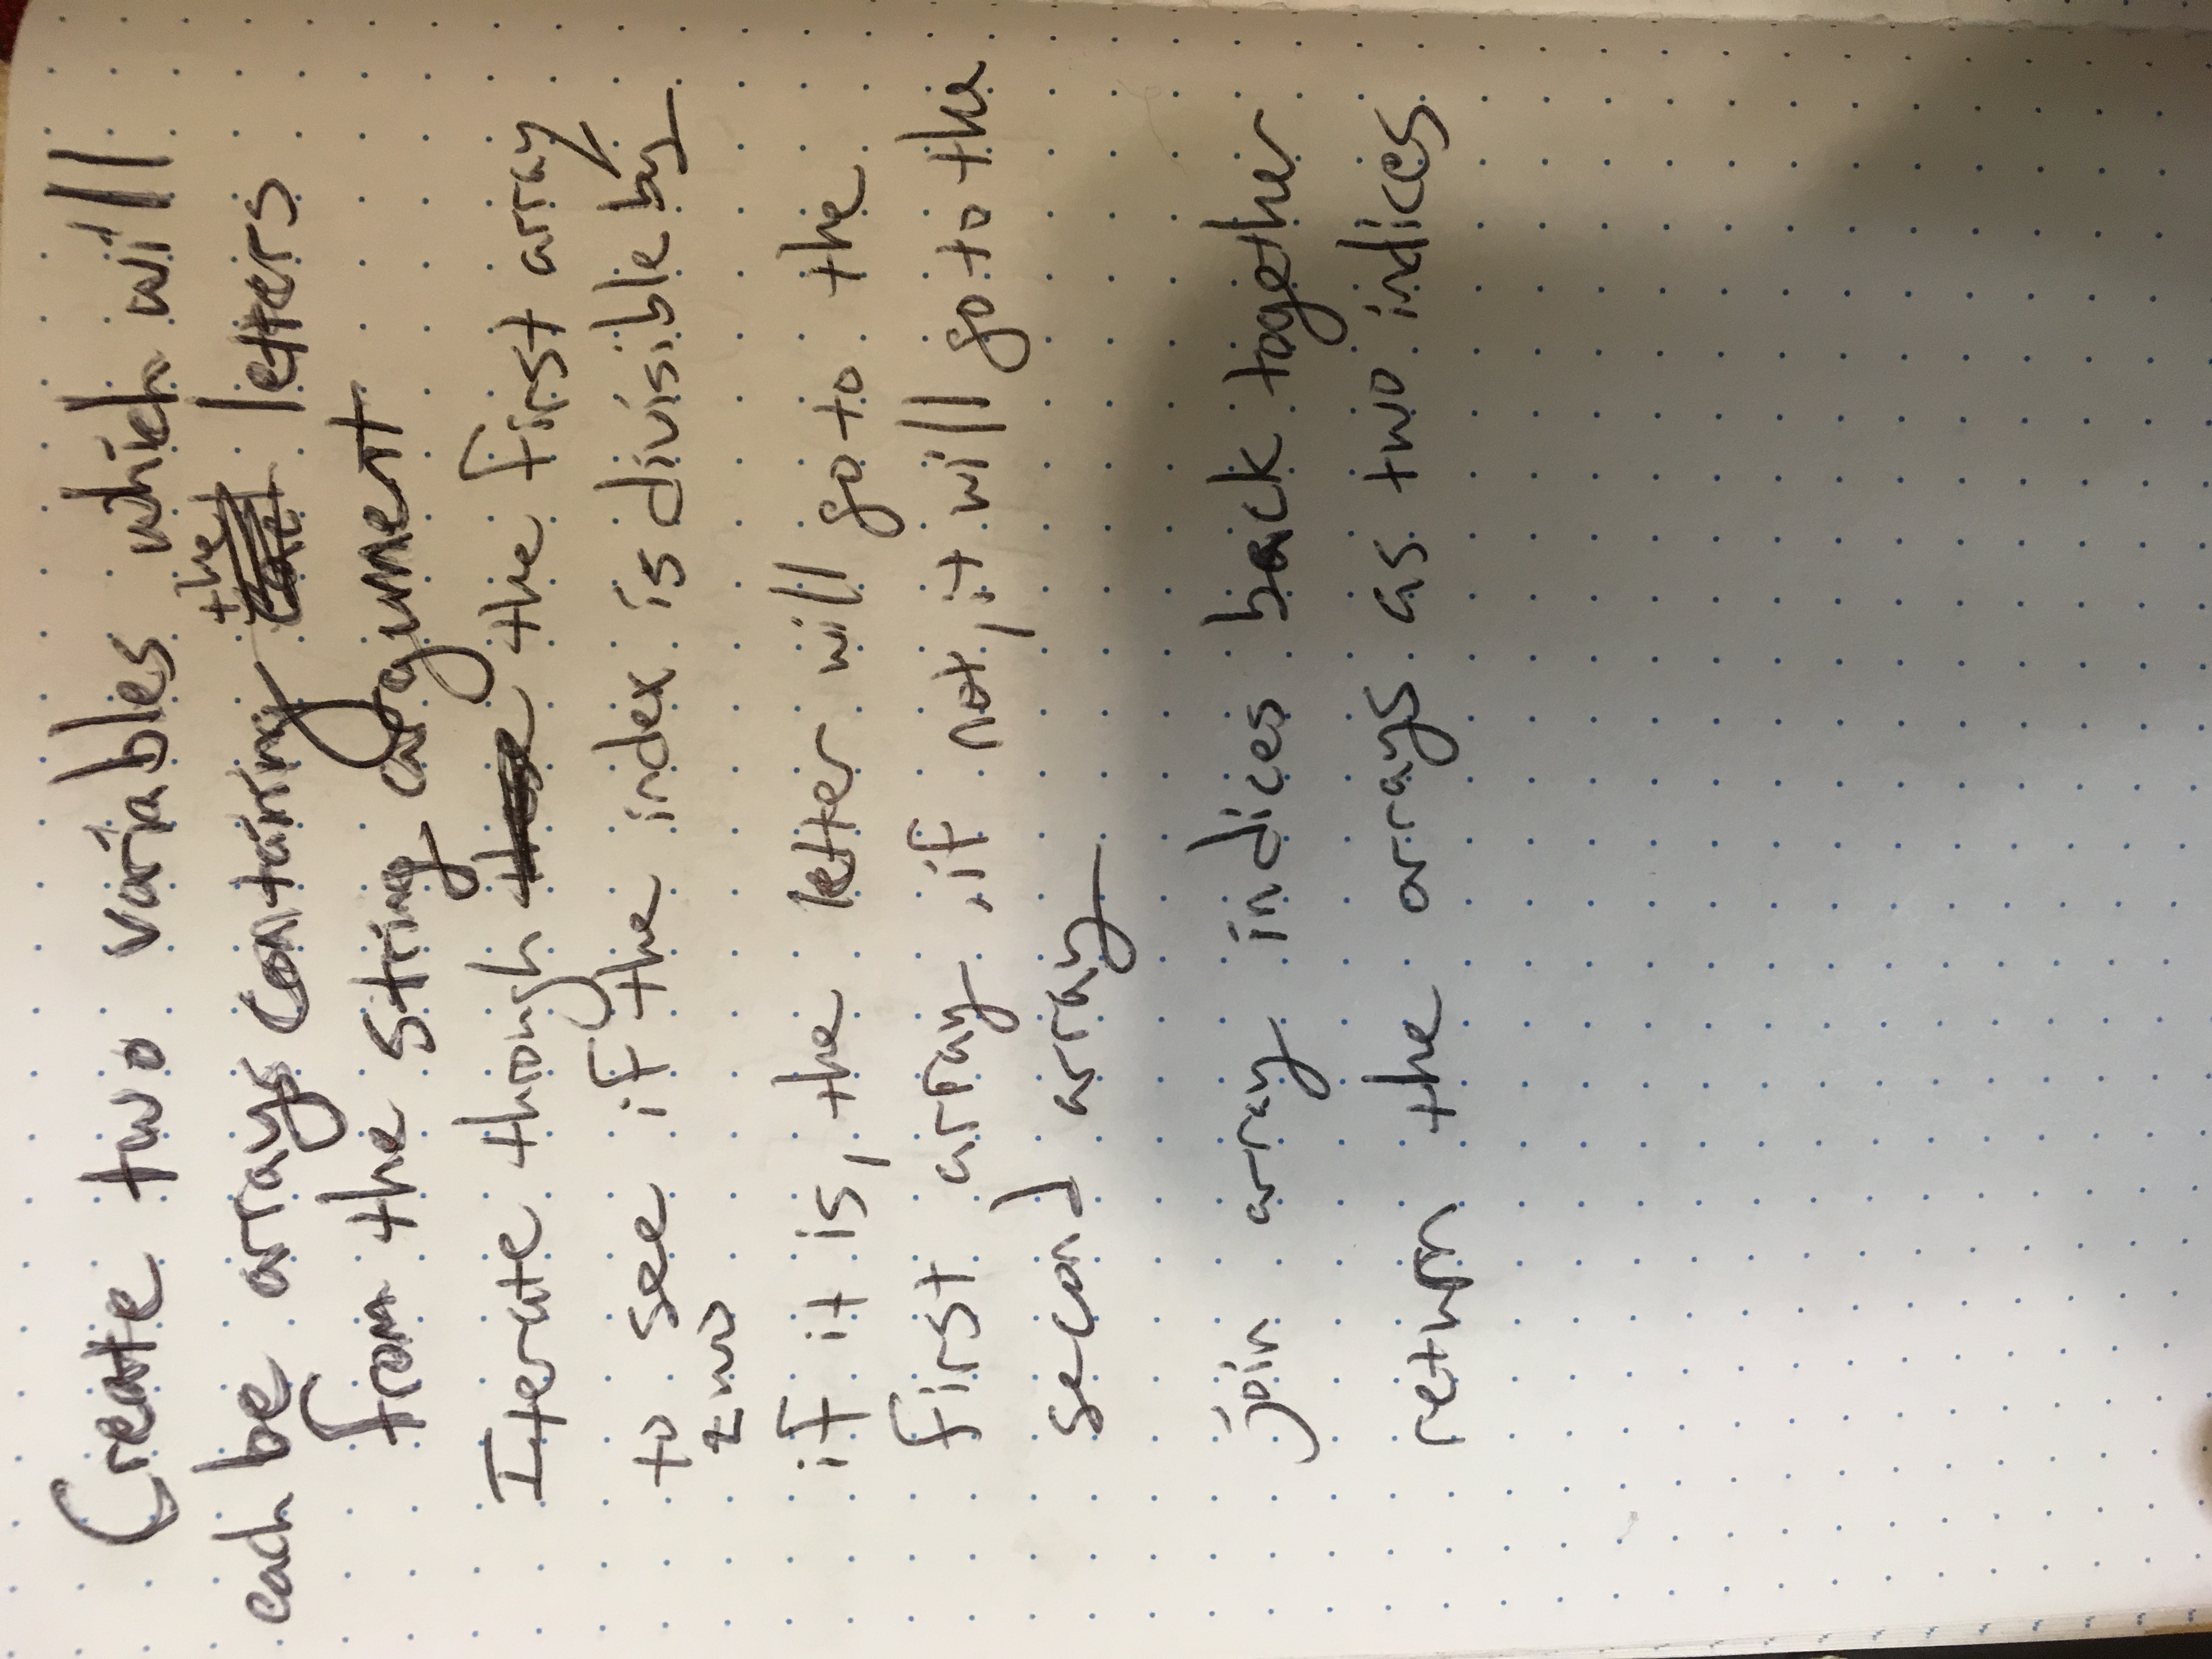 Create two variables which will
each be arrays containing the letters
from the string argument
Iterate through these the first array
to see if the index is divisible by
two
if it is, the letter will go to the
first array, if not, it will go to the
second array
join array indices back together
return the arrays as two indices